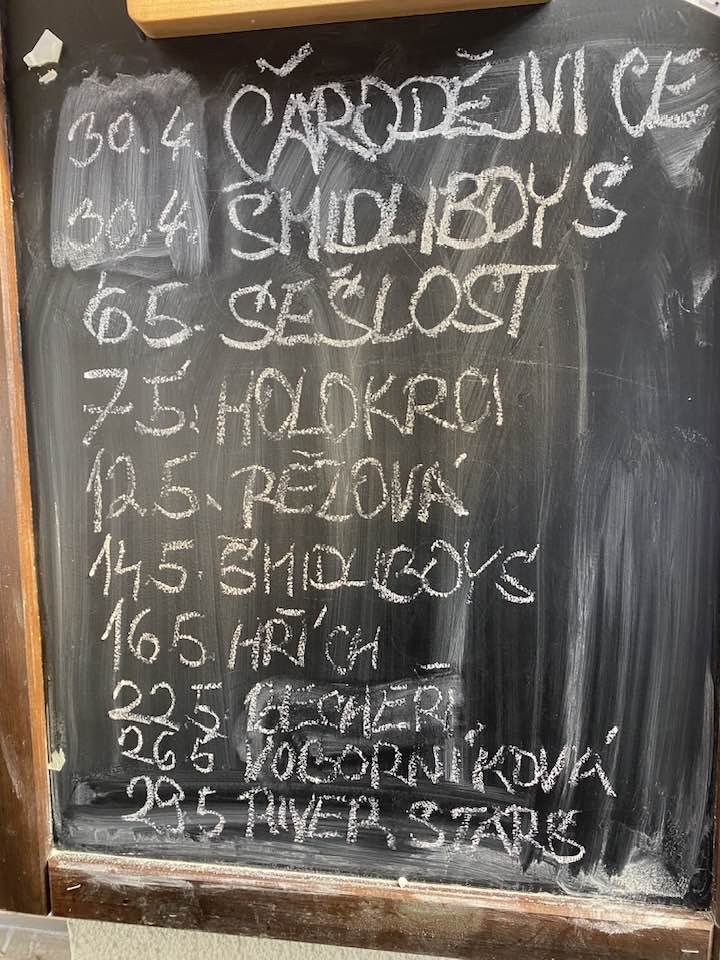 30.4. ČARODĚJNICE
30.4. ŠMIDLIBOYS
6.5. SEŠLOST
7.5. HOLOKRCI
12.5. RĚŽOVÁ
14.5. ŠMIDLIBOYS
16.5. HŘÍCH
22.5
26.5 VOBORNÍKOVÁ
29.5 RIVER STARS